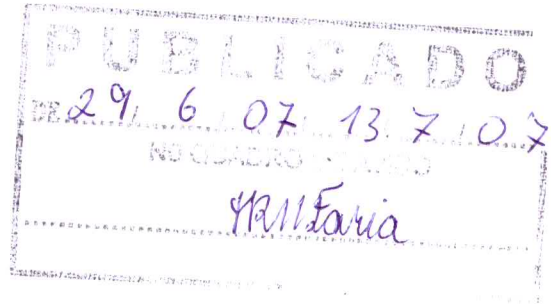 PUBLICADO
DE 29/ 6 / 07 13. 7 / 07
NO QUADRO
Faria